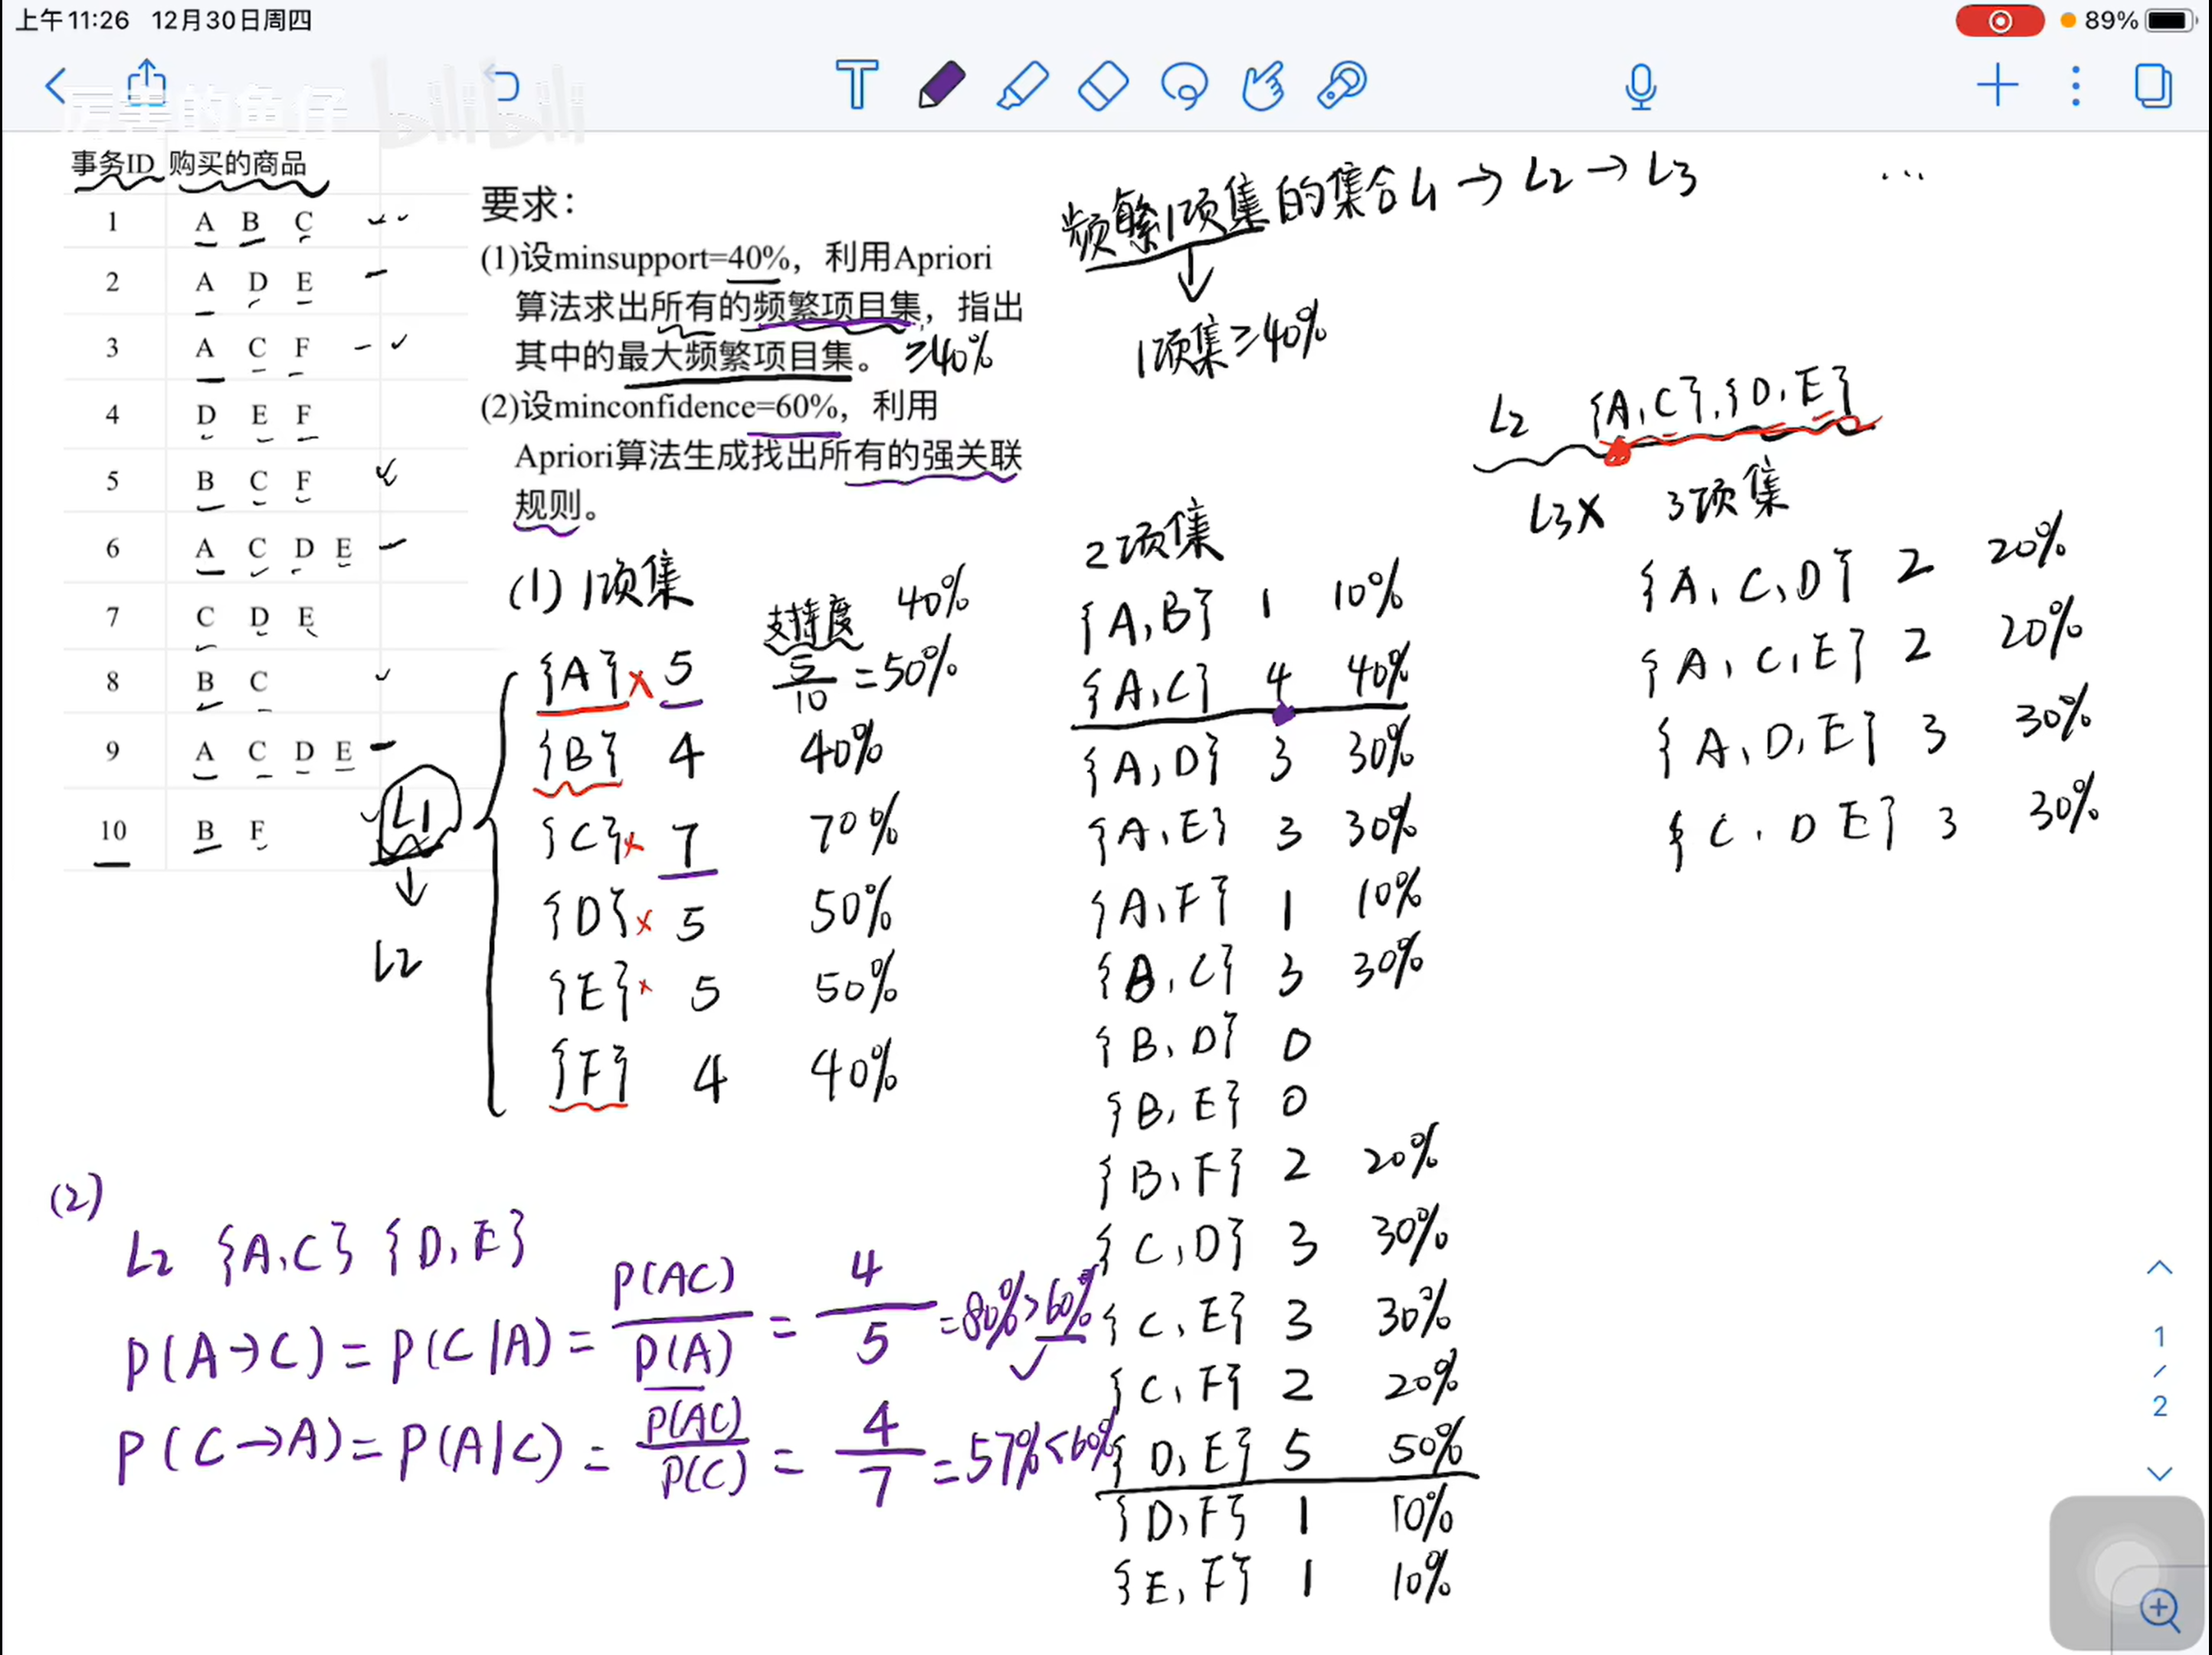 上午11:26 12月30日周四
89%
厉害的鱼仔 bilibili
事务ID 购买的商品
1 A B C
2 A D E
3 A C F
4 D E F
5 B C F
6 A C D E
7 C D E
8 B C
9 A C D E
10 B F
要求：
(1)设minsupport=40%，利用Apriori
算法求出所有的频繁项目集，指出
其中的最大频繁项目集。 ≥40%
(2)设minconfidence=60%，利用
Apriori算法生成找出所有的强关联
规则。
频繁1项集的集合L1→L2→L3 …
↓
1项集≥40%
(1) 1项集
支持度 40%
{A}× 5 5/10=50%
{B} 4 40%
{C}× 7 70%
{D}× 5 50%
{E}× 5 50%
{F} 4 40%
L1
↓
L2
2项集
{A,B} 1 10%
{A,C} 4 40%
{A,D} 3 30%
{A,E} 3 30%
{A,F} 1 10%
{B,C} 3 30%
{B,D} 0
{B,E} 0
{B,F} 2 20%
{C,D} 3 30%
{C,E} 3 30%
{C,F} 2 20%
{D,E} 5 50%
{D,F} 1 10%
{E,F} 1 10%
L2 {A,C},{D,E}
L3× 3项集
{A,C,D} 2 20%
{A,C,E} 2 20%
{A,D,E} 3 30%
{C,D E} 3 30%
(2)
L2 {A,C} {D,E}
P(A→C)=P(C|A)=P(AC)/P(A)=4/5=80%>60% ✓
P(C→A)=P(A|C)=P(AC)/P(C)=4/7=57%<60%
1
/
2